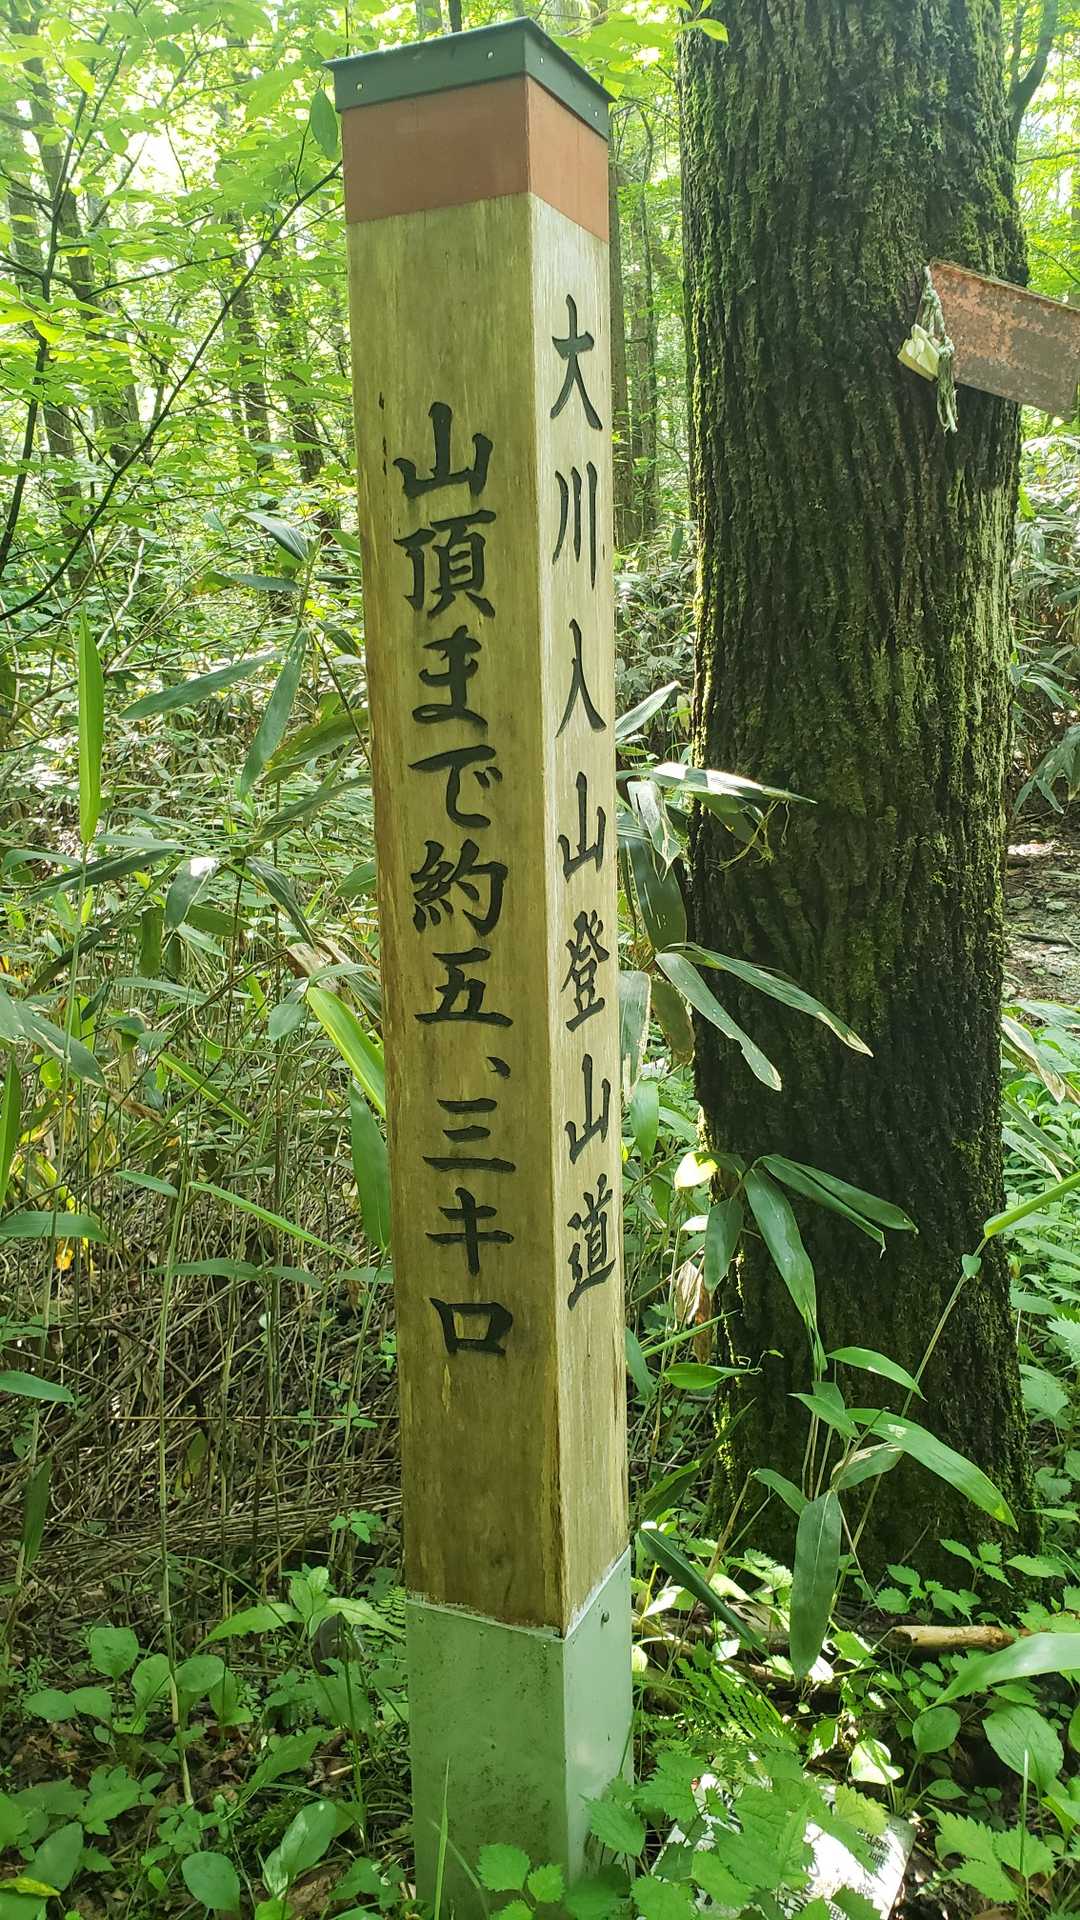 大川入山登山道
山頂まで約五、三キロ